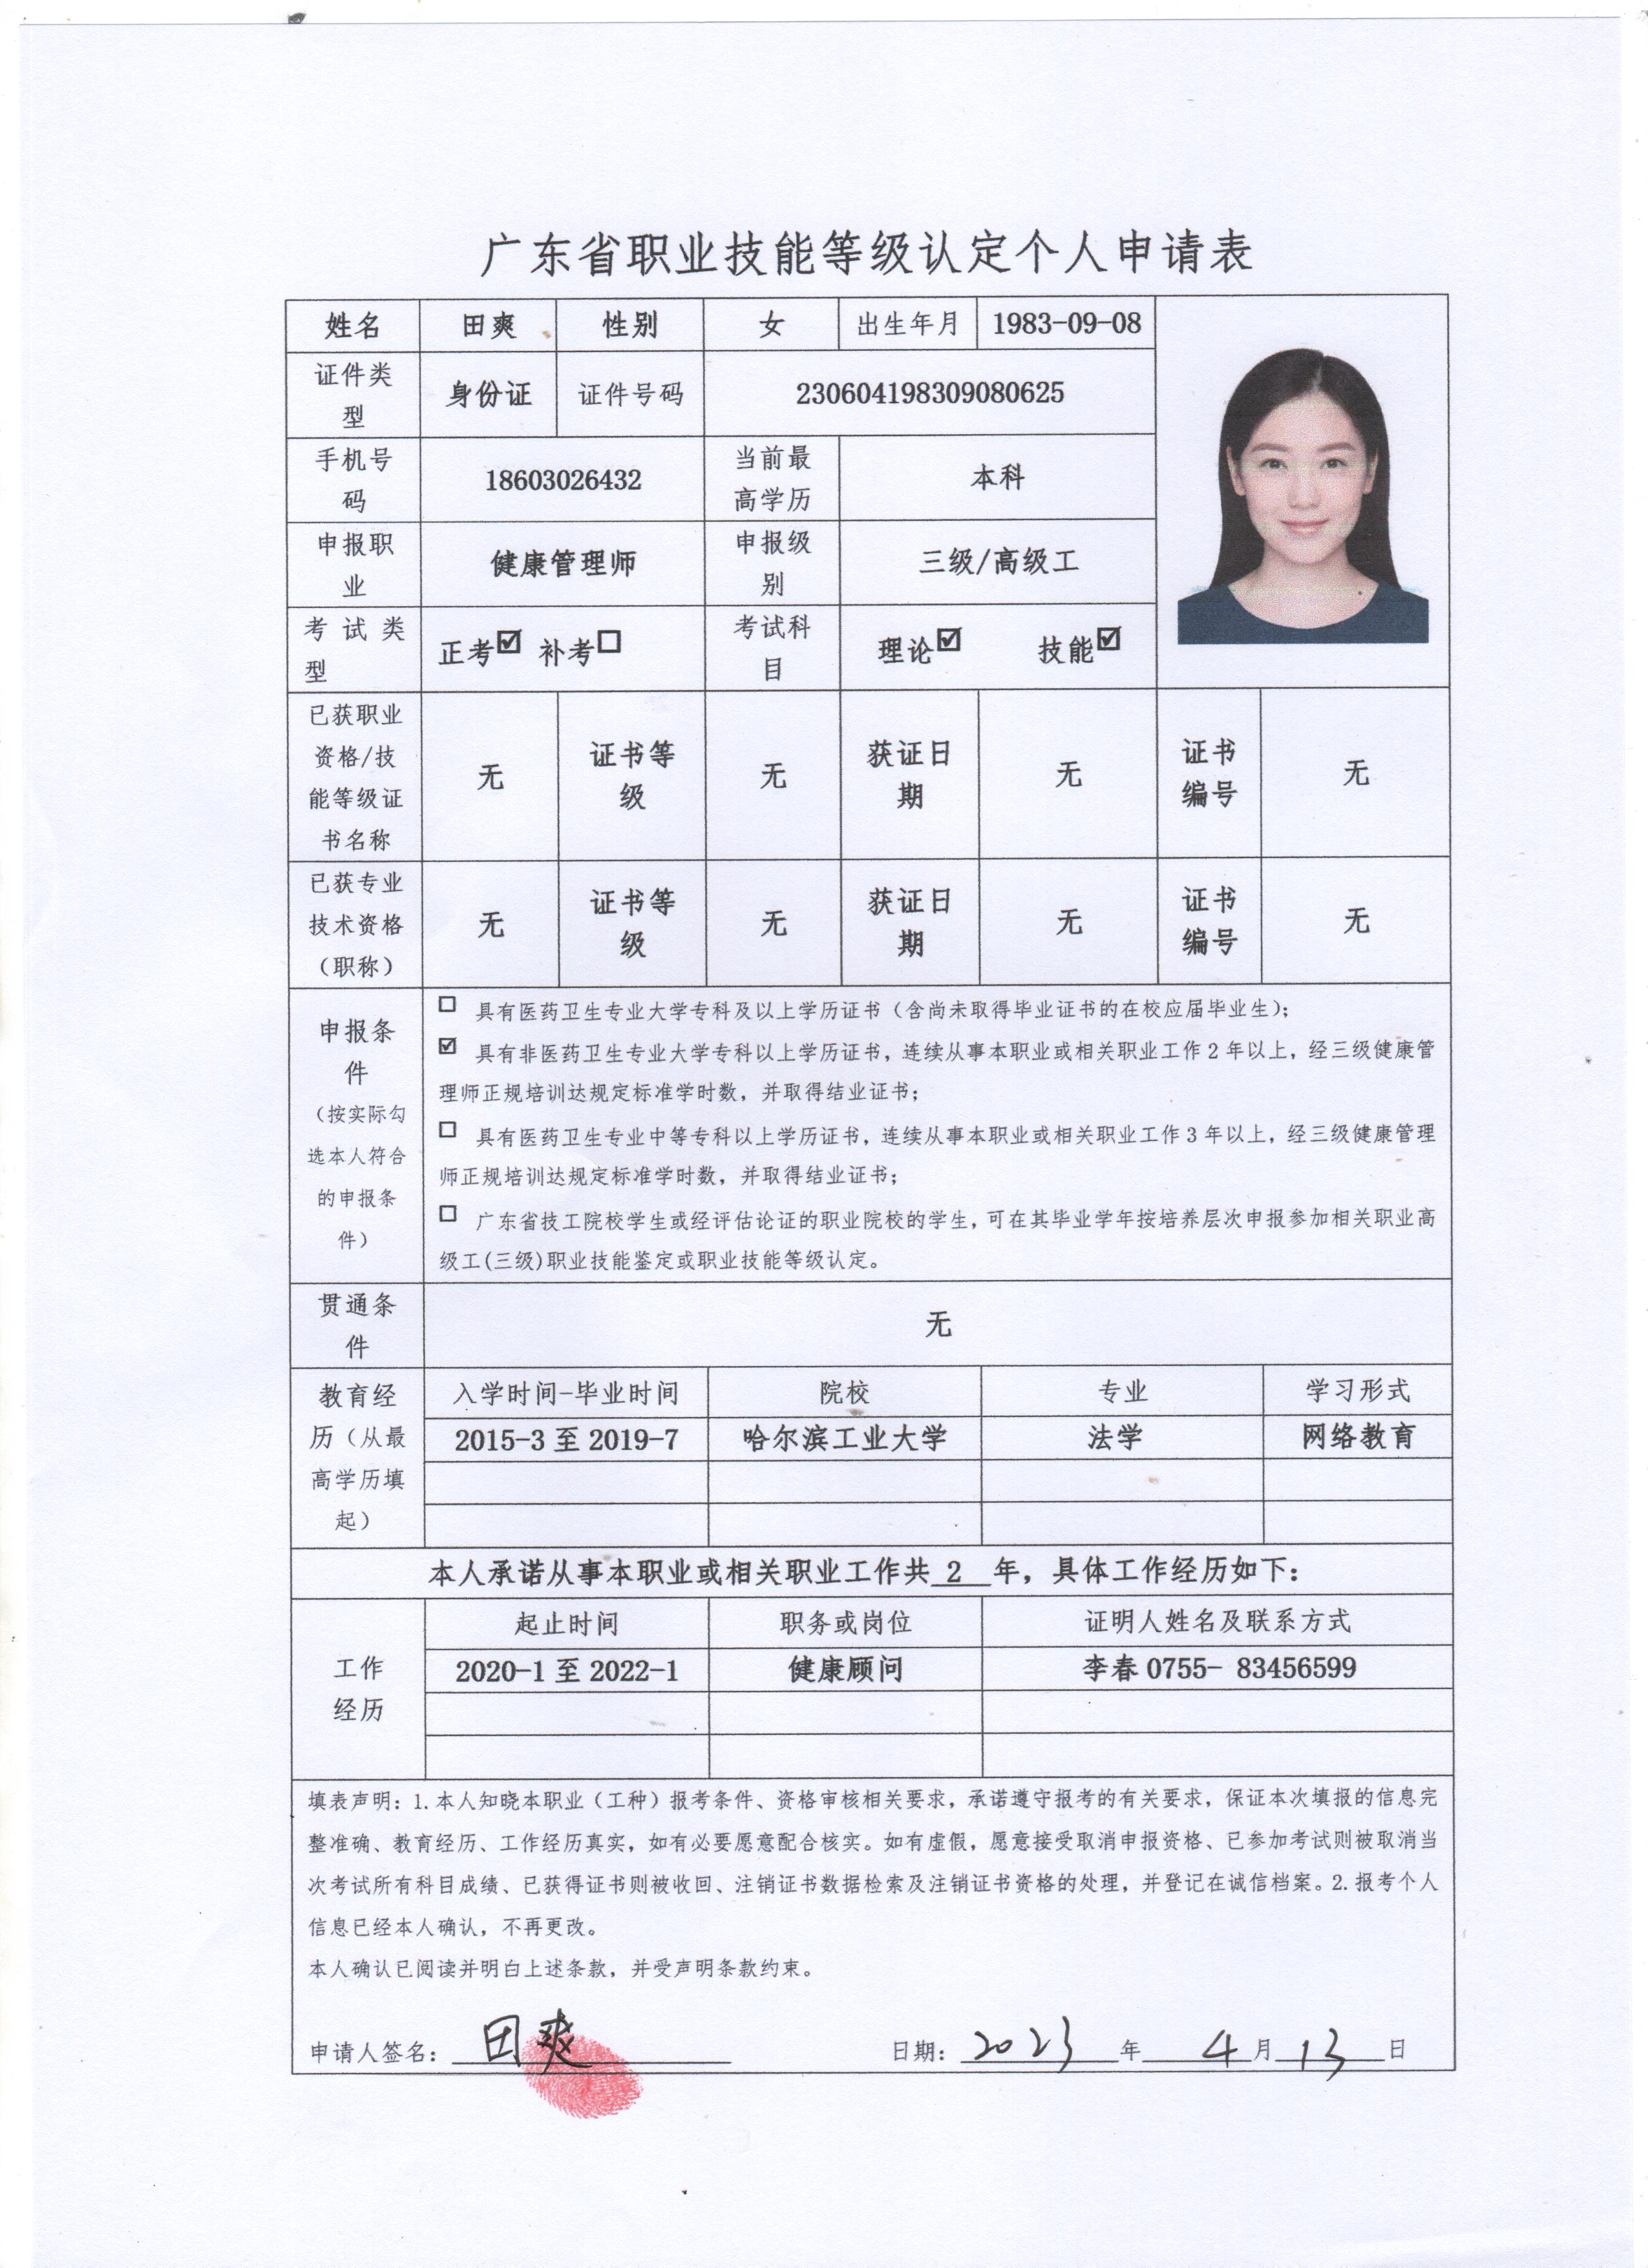 广东省职业技能等级认定个人申请表
姓名 田爽 性别 女 出生年月 1983-09-08
证件类型 身份证 证件号码 230604198309080625
手机号码 18603026432 当前最高学历 本科
申报职业 健康管理师 申报级别 三级/高级工
考试类型 正考☑ 补考☐ 考试科目 理论☑ 技能☑
已获职业资格/技能等级证书名称 无 证书等级 无 获证日期 无 证书编号 无
已获专业技术资格（职称） 无 证书等级 无 获证日期 无 证书编号 无
申报条件（按实际勾选本人符合的申报条件）
☐ 具有医药卫生专业大学专科及以上学历证书（含尚未取得毕业证书的在校应届毕业生）；
☑ 具有非医药卫生专业大学专科以上学历证书，连续从事本职业或相关职业工作2年以上，经三级健康管
理师正规培训达规定标准学时数，并取得结业证书；
☐ 具有医药卫生专业中等专科以上学历证书，连续从事本职业或相关职业工作3年以上，经三级健康管理
师正规培训达规定标准学时数，并取得结业证书；
☐ 广东省技工院校学生或经评估论证的职业院校的学生，可在其毕业学年按培养层次申报参加相关职业高
级工(三级)职业技能鉴定或职业技能等级认定。
贯通条件 无
教育经历（从最高学历填起） 入学时间-毕业时间 院校 专业 学习形式
2015-3 至 2019-7 哈尔滨工业大学 法学 网络教育
本人承诺从事本职业或相关职业工作共 2 年，具体工作经历如下：
工作经历 起止时间 职务或岗位 证明人姓名及联系方式
2020-1 至 2022-1 健康顾问 李春 0755- 83456599
填表声明：1.本人知晓本职业（工种）报考条件、资格审核相关要求，承诺遵守报考的有关要求，保证本次填报的信息完
整准确、教育经历、工作经历真实，如有必要愿意配合核实。如有虚假，愿意接受取消申报资格、已参加考试则被取消当
次考试所有科目成绩、已获得证书则被收回、注销证书数据检索及注销证书资格的处理，并登记在诚信档案。2.报考个人
信息已经本人确认，不再更改。
本人确认已阅读并明白上述条款，并受声明条款约束。
申请人签名：田爽 日期：2023 年 4 月 13 日